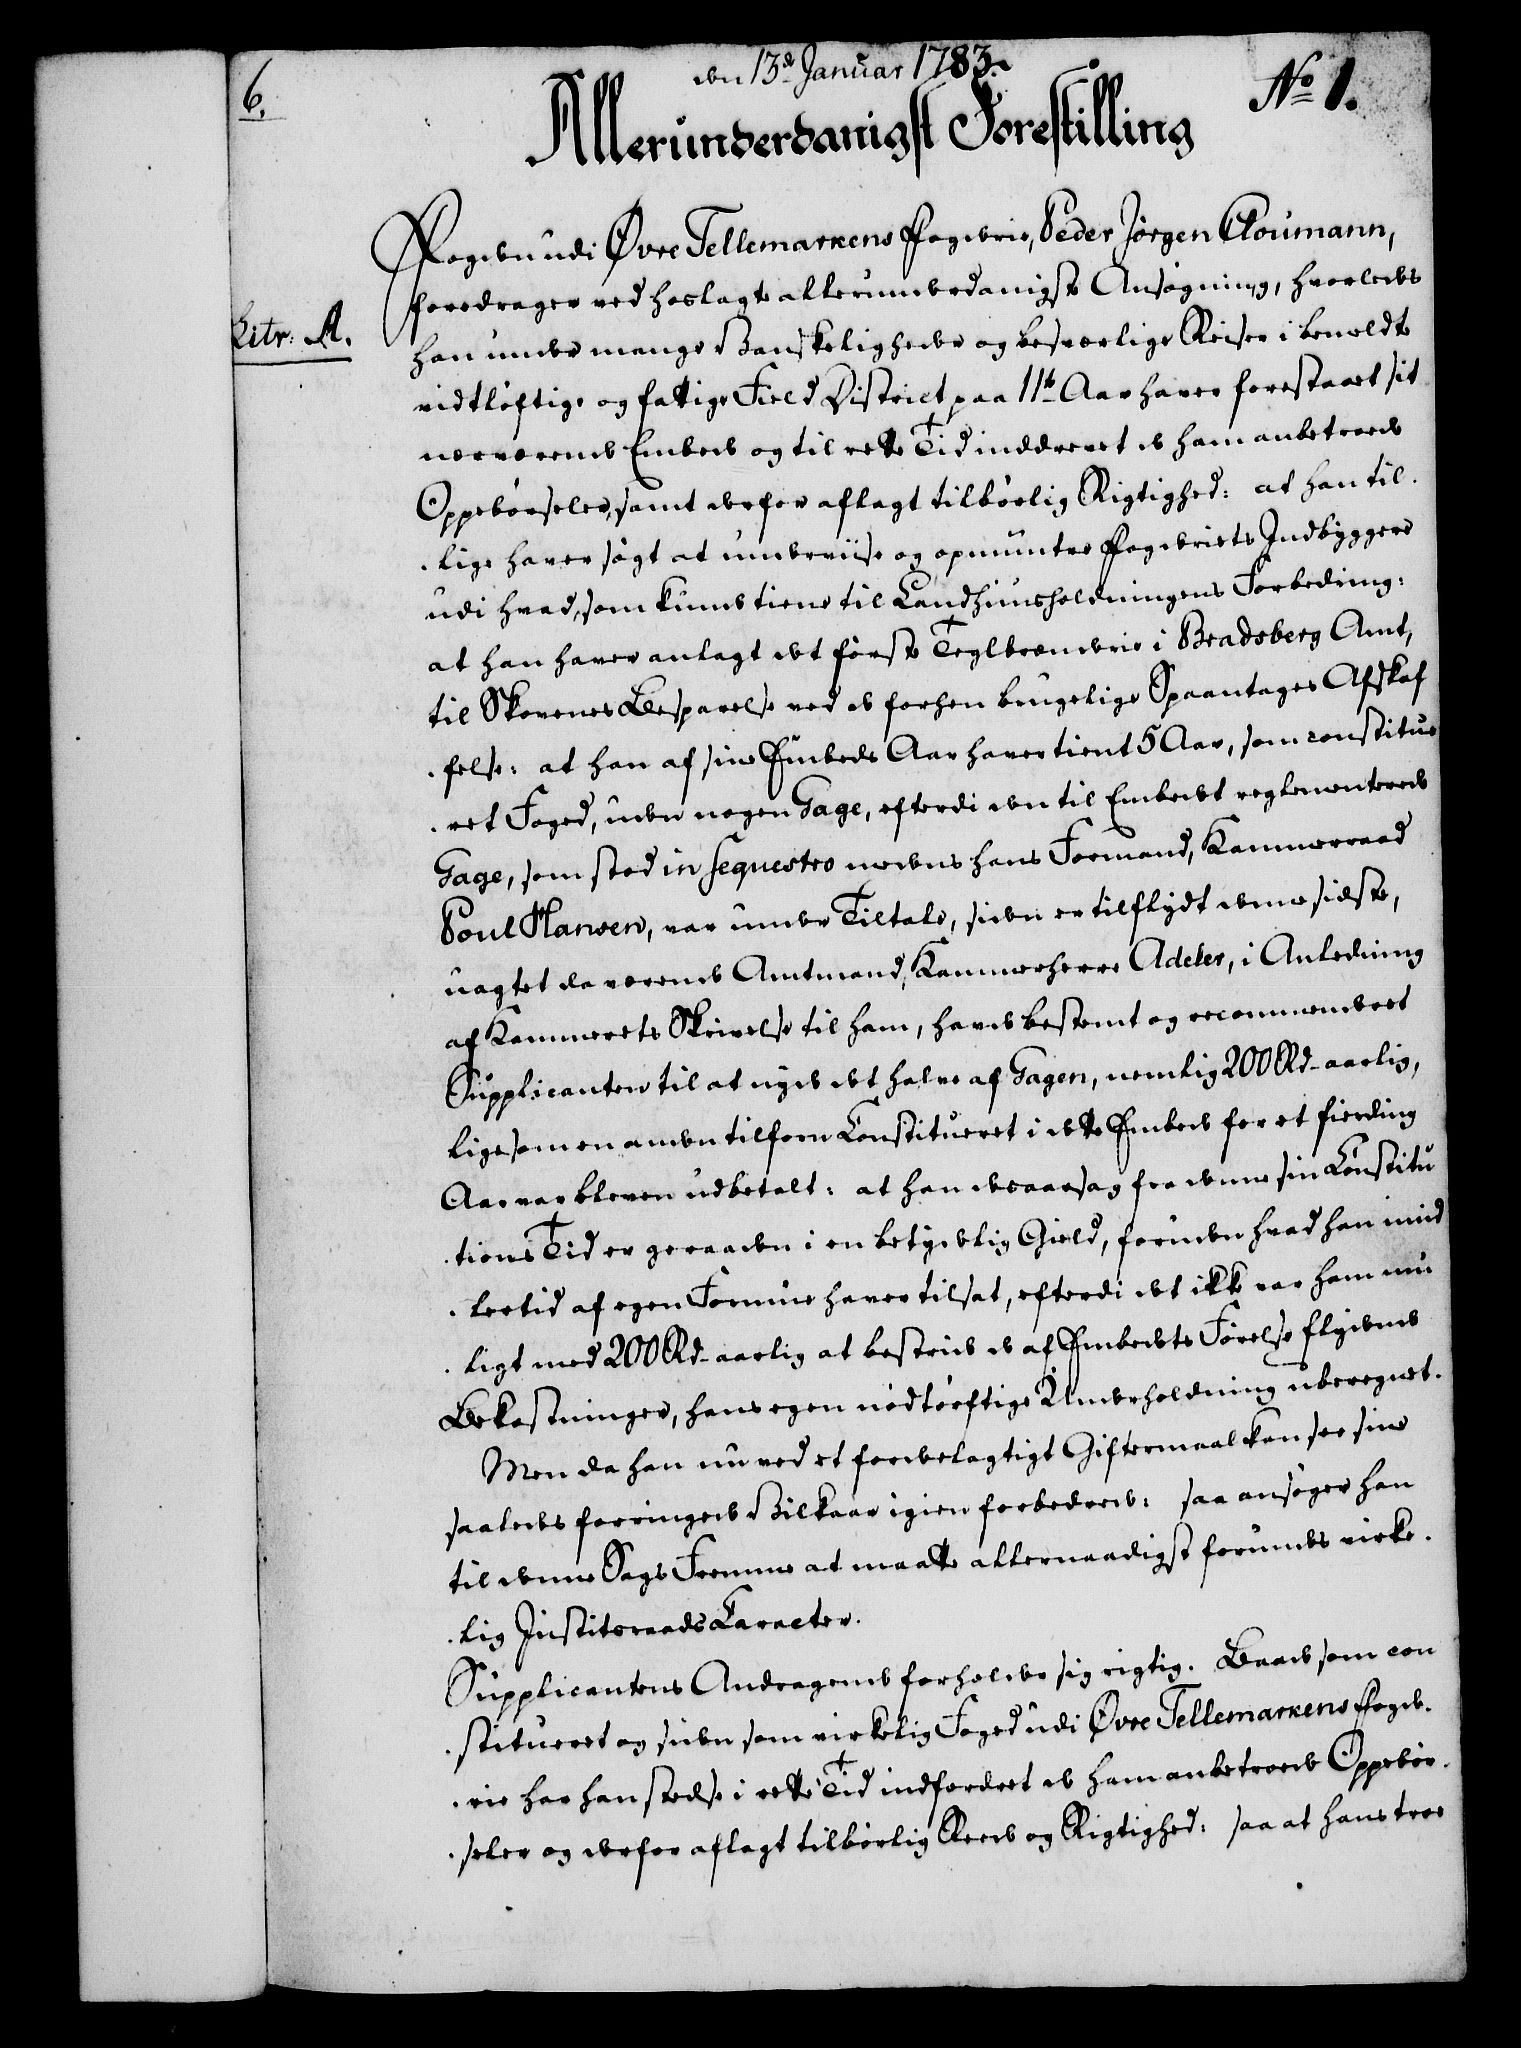 6.
den 13de Januar 1783.
No 1.
Allerunderdanigst Forestilling
Fogden udi Øvre Tellemarkens Fogderie, Peder Jørgen Cloumann,
Litr: A.
foredrager ved hoslagte allerunderdanigste Ansøgning, hvorledes
han under mange Vanskeligheder og besværlige Reiser i bemeldte
vidtløftige og fattige Field District paa 11te Aar haver forestaaet sit
nærværende Embede og til rette Tid inddrevet de ham anbetroede
Oppebørseler, samt derfor aflagt tilbørlig Rigtighed: at han til-
lige haver søgt at underviise og opmuntre Fogderiets Indbyggere
udi hvad, som kunde tiene til Landhuusholdningens Forbedring:
at han haver anlagt det første Teglbrænderie i Bradsberg Amt,
til Skovenes Besparelse ved de forhen brugelige Spaantages Afskaf
-felse: at han af sine Embeds Aar haver tient 5 Aar, som constitue
-ret Foged, uden nogen Gage, efterdi den til Embedet reglementerede
Gage, som stod in sequestro medens hans Formand, Kammerraad
Poul Hansen, var under Tiltale, siden er tilflydt denne sidste,
uagtet da værende Amtmand, Kammerherre Adeler, i Anledning
af Kammerets Skrivelse til ham, havde bestemt og recommenderet
Supplicanten til at nyde det halve af Gagen, nemlig 200 Rd aarlig,
ligesom en anden tilforn Constitueret i dette Embede for et fierding
Aar var bleven udbetalt: at han desaarsag fra denne sin Constitu
-tions Tid er geraaden i en betydelig Gield, foruden hvad han imid
-lertid af egen Formue haver tilsat, efterdi det ikke var ham mu
-ligt med 200 Rd aarlig at bestride de af Embedets Førelse flydende
Bekostninger, hans egen nødtørftige Underholdning uberegnet.
Men da han nu ved et fordelagtigt Giftermaal kan see sine
saaledes forringede Vilkaar igien forbedrede: saa ansøger han
til denne Sags Fremme at maatte allernaadigst forundes virke-
-lig Justitsraads Caracter.
Supplicantens Andragende forholder sig rigtig. Baade som con
-stitueret og siden som virkelig Foged udi Øvre Tellemarkens Fogde-
-rie har han stedse i rette Tid indfordret de ham anbetroede Oppebør-
-seler og derfor aflagt tilbørlig Reede og Rigtighed: saa at hans troe